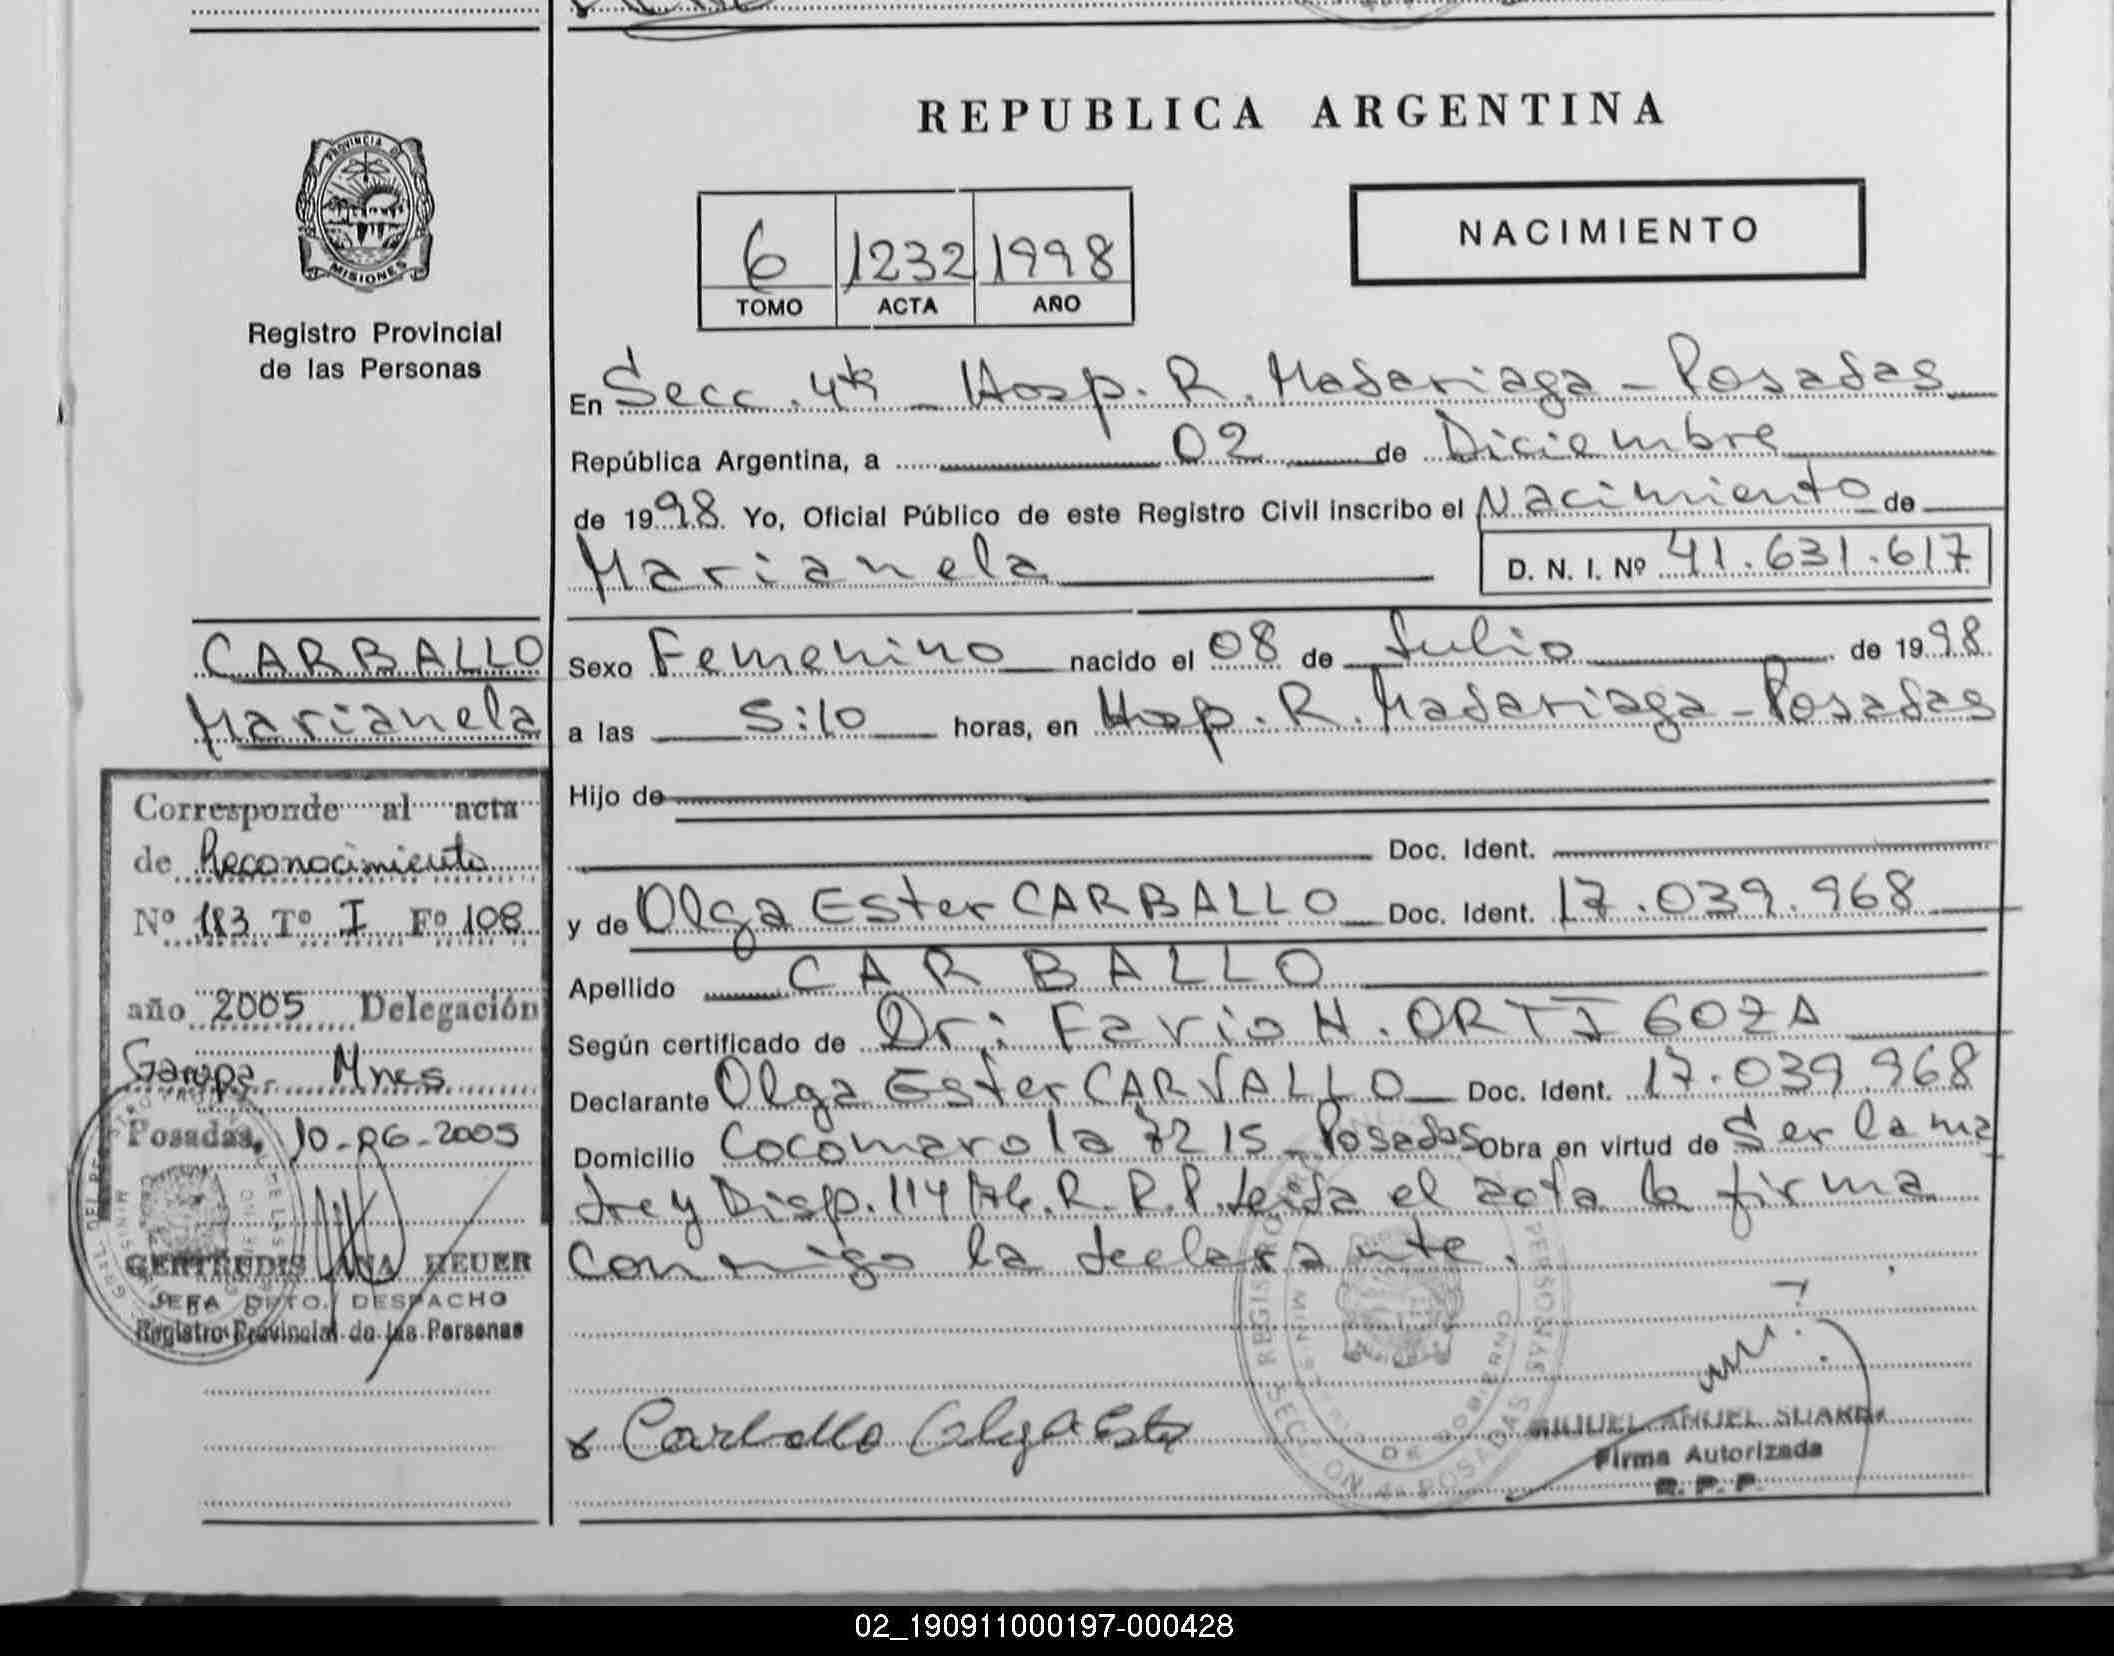 REPUBLICA ARGENTINA
PROVINCIA DE
MISIONES
Registro Provincial
de las Personas
NACIMIENTO
6 1232 1998
TOMO ACTA AÑO
En Secc. 4ta - Hosp. R. Madariaga - Posadas
República Argentina, a 02 de Diciembre
de 1998 Yo, Oficial Público de este Registro Civil inscribo el Nacimiento de
Marianela
D. N. I. Nº 41.631.617
CARBALLO
Marianela
Sexo Femenino nacido el 08 de Julio de 1998
a las 5:10 horas, en Hosp. R. Madariaga - Posadas
Hijo de
Doc. Ident.
y de Olga Ester CARBALLO Doc. Ident. 17.039.968
Apellido CARBALLO
Según certificado de Dr: Fario H. ORTIGOZA
Declarante Olga Ester CARVALLO Doc. Ident. 17.039.968
Domicilio Cocomarola 7215 - Posadas Obra en virtud de Ser la ma
dre y Disp. 114/76. R. R. P. Leida el acta la firma
conmigo la declarante.
Corresponde al acta
de Reconocimiento
Nº 183 Tº I Fº 108
año 2005 Delegación
Garupa - Mnes
Posadas, 10-06-2005
GERTRUDIS ANA HEUER
JEFA DPTO. DESPACHO
Registro Provincial de las Personas
x Carballo Olga Ester
MIGUEL ANGEL SUAREZ
Firma Autorizada
R. P. P.
02_190911000197-000428